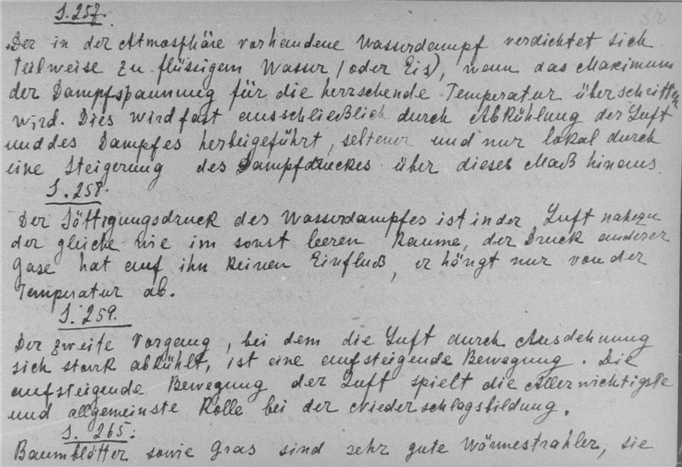 S. 257.
52
Der in der Atmosphäre vorhandene Wasserdampf verdichtet sich
teilweise zu flüssigem Wasser (oder Eis), wenn das Maximum
der Dampfspannung für die herrschende Temperatur überschritten
wird. Dies wird fast ausschließlich durch Abkühlung der Luft
und des Dampfes herbeigeführt, seltener und nur lokal durch
eine Steigerung des Dampfdruckes über dieses Maß hinaus.
S. 258.
Der Sättigungsdruck des Wasserdampfes ist in der Luft nahezu
der gleiche wie im sonst leeren Raume, der Druck anderer
Gase hat auf ihn keinen Einfluß, er hängt nur von der
Temperatur ab.
S. 259.
Der zweite Vorgang, bei dem die Luft durch Ausdehnung
sich stark abkühlt, ist eine aufsteigende Bewegung. Die
aufsteigende Bewegung der Luft spielt die Allerwichtigste
und allgemeinste Rolle bei der Niederschlagsbildung.
S. 265:
Baumblätter sowie Gras sind sehr gute Wärmestrahler, sie